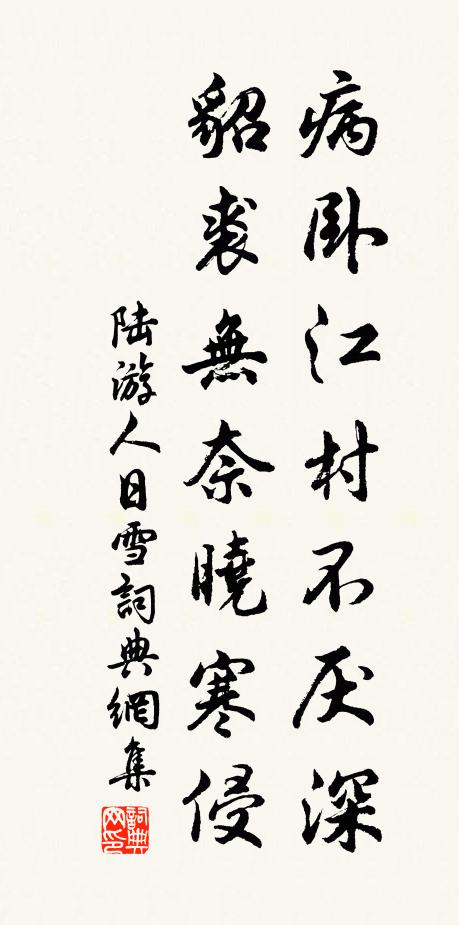 病卧江村不厌深
貂裘無奈曉寒侵
陆游人日雪詞典網集
詞典网印